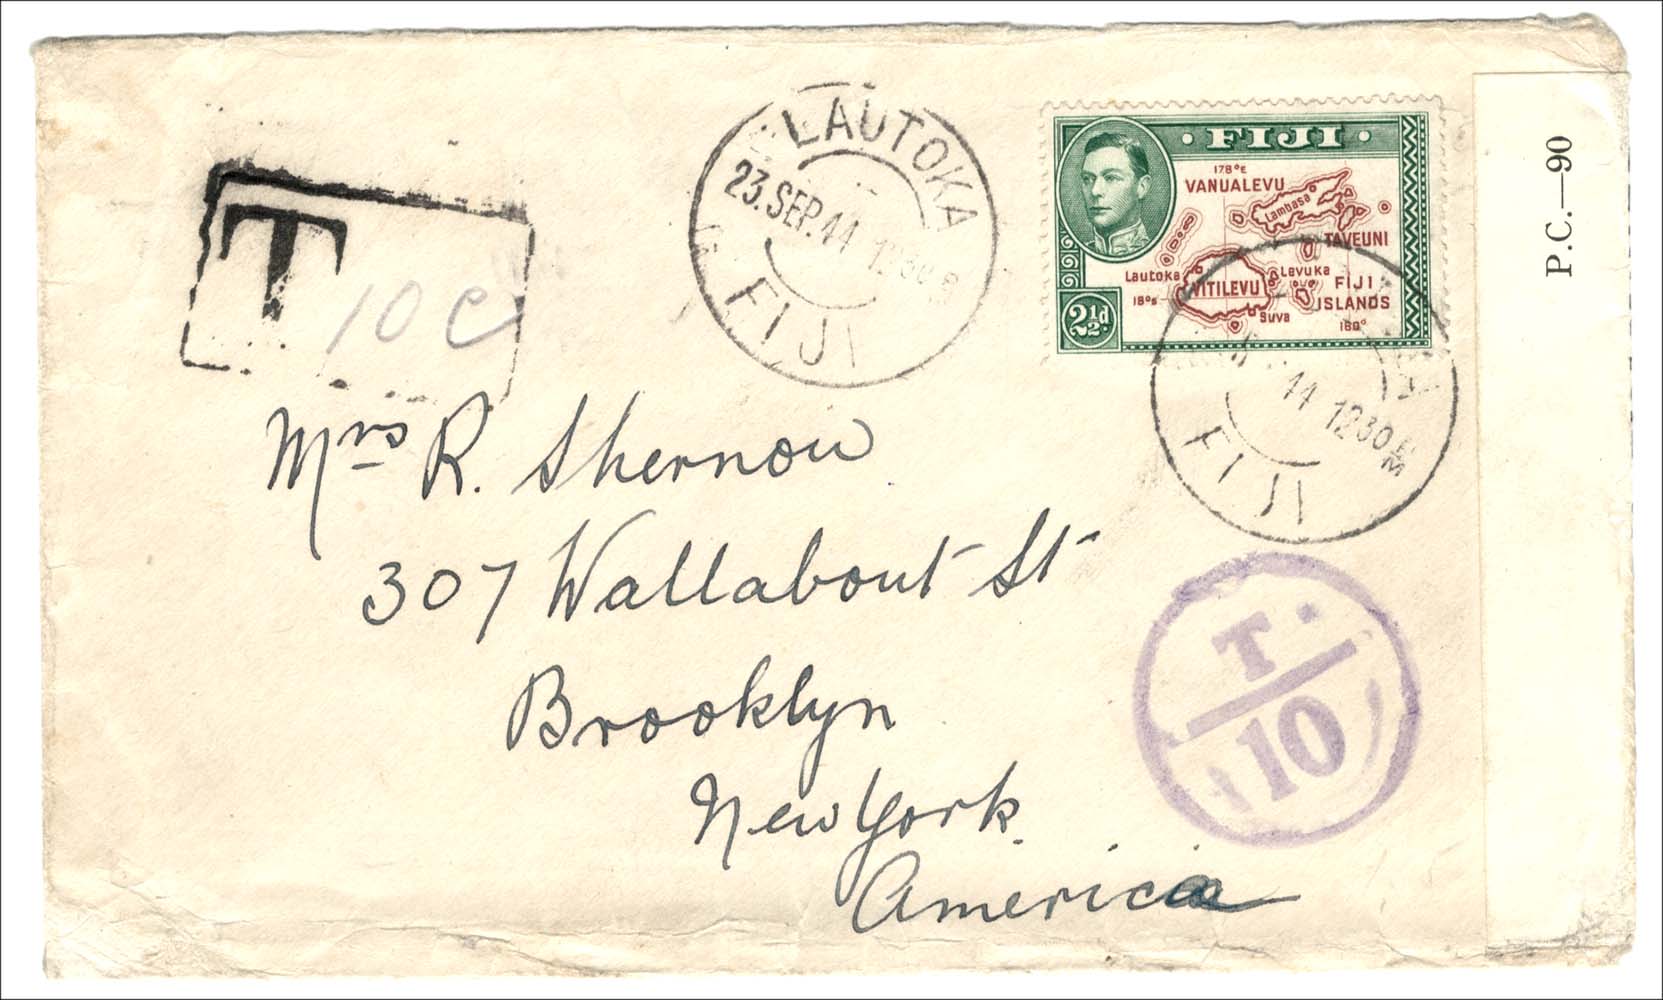 T
10 c
LAUTOKA
23.SEP.44 1230
FIJI
· FIJI ·
178°E
VANUALEVU
Lambasa
TAVEUNI
Lautoka
Levuka
VITILEVU
FIJI
ISLANDS
18°S
Suva
180°
2½d.
44 1230 P M
FIJI
P.C.—90
Mrs R. Shernow
307 Wallabout St
Brooklyn
New York.
America
T.
10